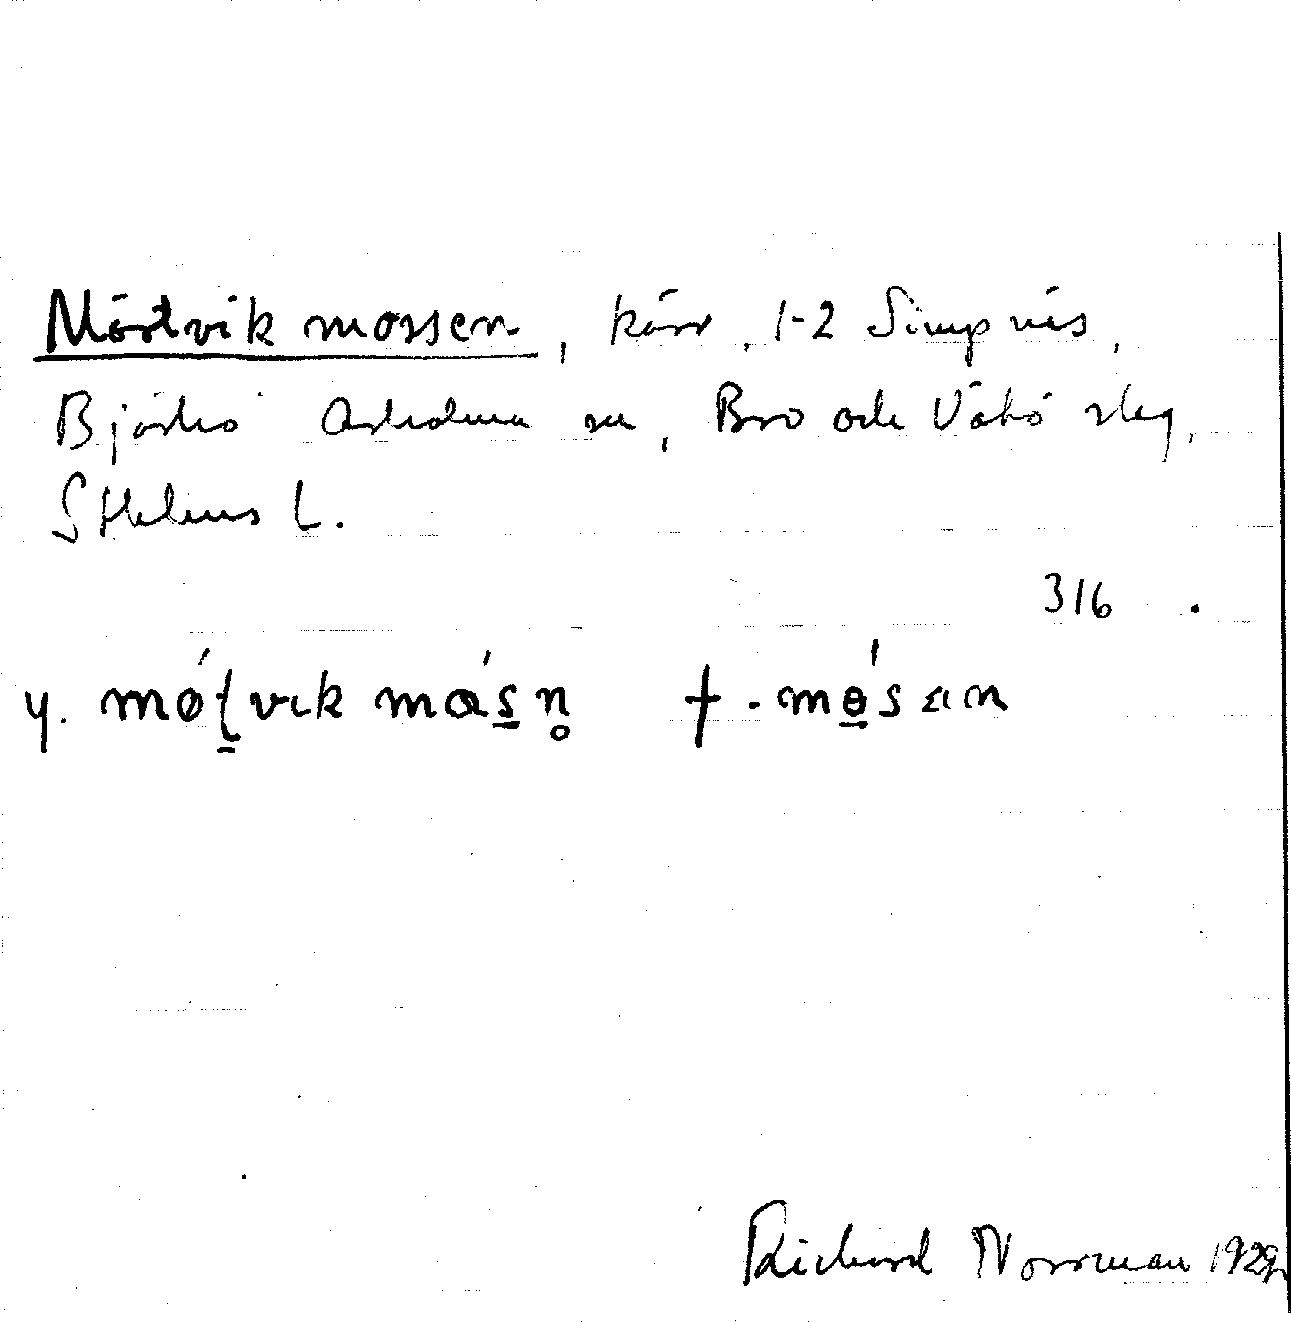 Mörtvik mossen, kärr, 1-2 Simpnäs,
Björkö Arholma sn, Bro och Vätö skg,
Sthlms L.
316.
y. mǿt̠vik mɑ́s̠n̥ † -mɵ̠́san
Richard Norrman 1929